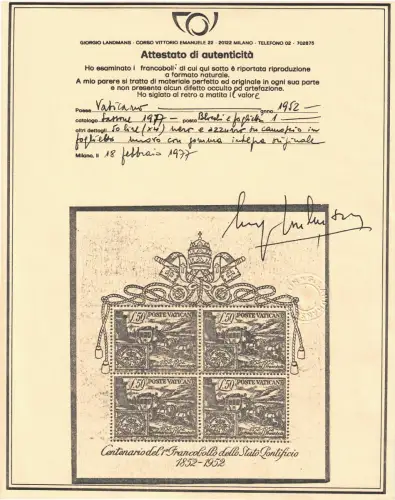 GIORGIO LANDMANS - CORSO VITTORIO EMANUELE 22 - 20122 MILANO - TELEFONO 02 - 702875
Attestato di autenticità
Ho esaminato i francobolli di cui qui sotto è riportata riproduzione
a formato naturale.
A mio parere si tratta di materiale perfetto ed originale in ogni sua parte
e non presenta alcun difetto occulto od artefazione.
Ho siglato al retro a matita il valore
Paese Vaticano anno 1952
catalogo Sassone 1977 - posto Blocchi e foglietti 1
altri dettagli 50 lire (x4) nero e azzurro su camoscio in
foglietto nuovo con gomma integra originale
Milano, li 18 febbraio 1977
L.50 POSTE VATICANE L.50 POSTE VATICANE
L.50 POSTE VATICANE L.50 POSTE VATICANE
Centenario del 1° Francobollo dello Stato Pontificio
1852-1952